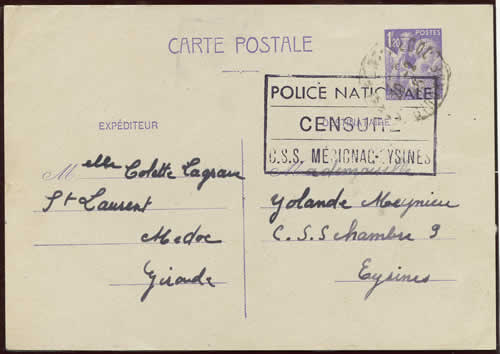 CARTE POSTALE
1F20 POSTES
POLICE NATIONALE
CENSURE
C.S.S. MÉRIGNAC-EYSINES
EXPÉDITEUR
DESTINATAIRE
Melle Colette Lagrave
St Laurent
Medoc
Gironde
Mademoiselle
Yolande Meynieu
C.S.S chambre 9
Eysines